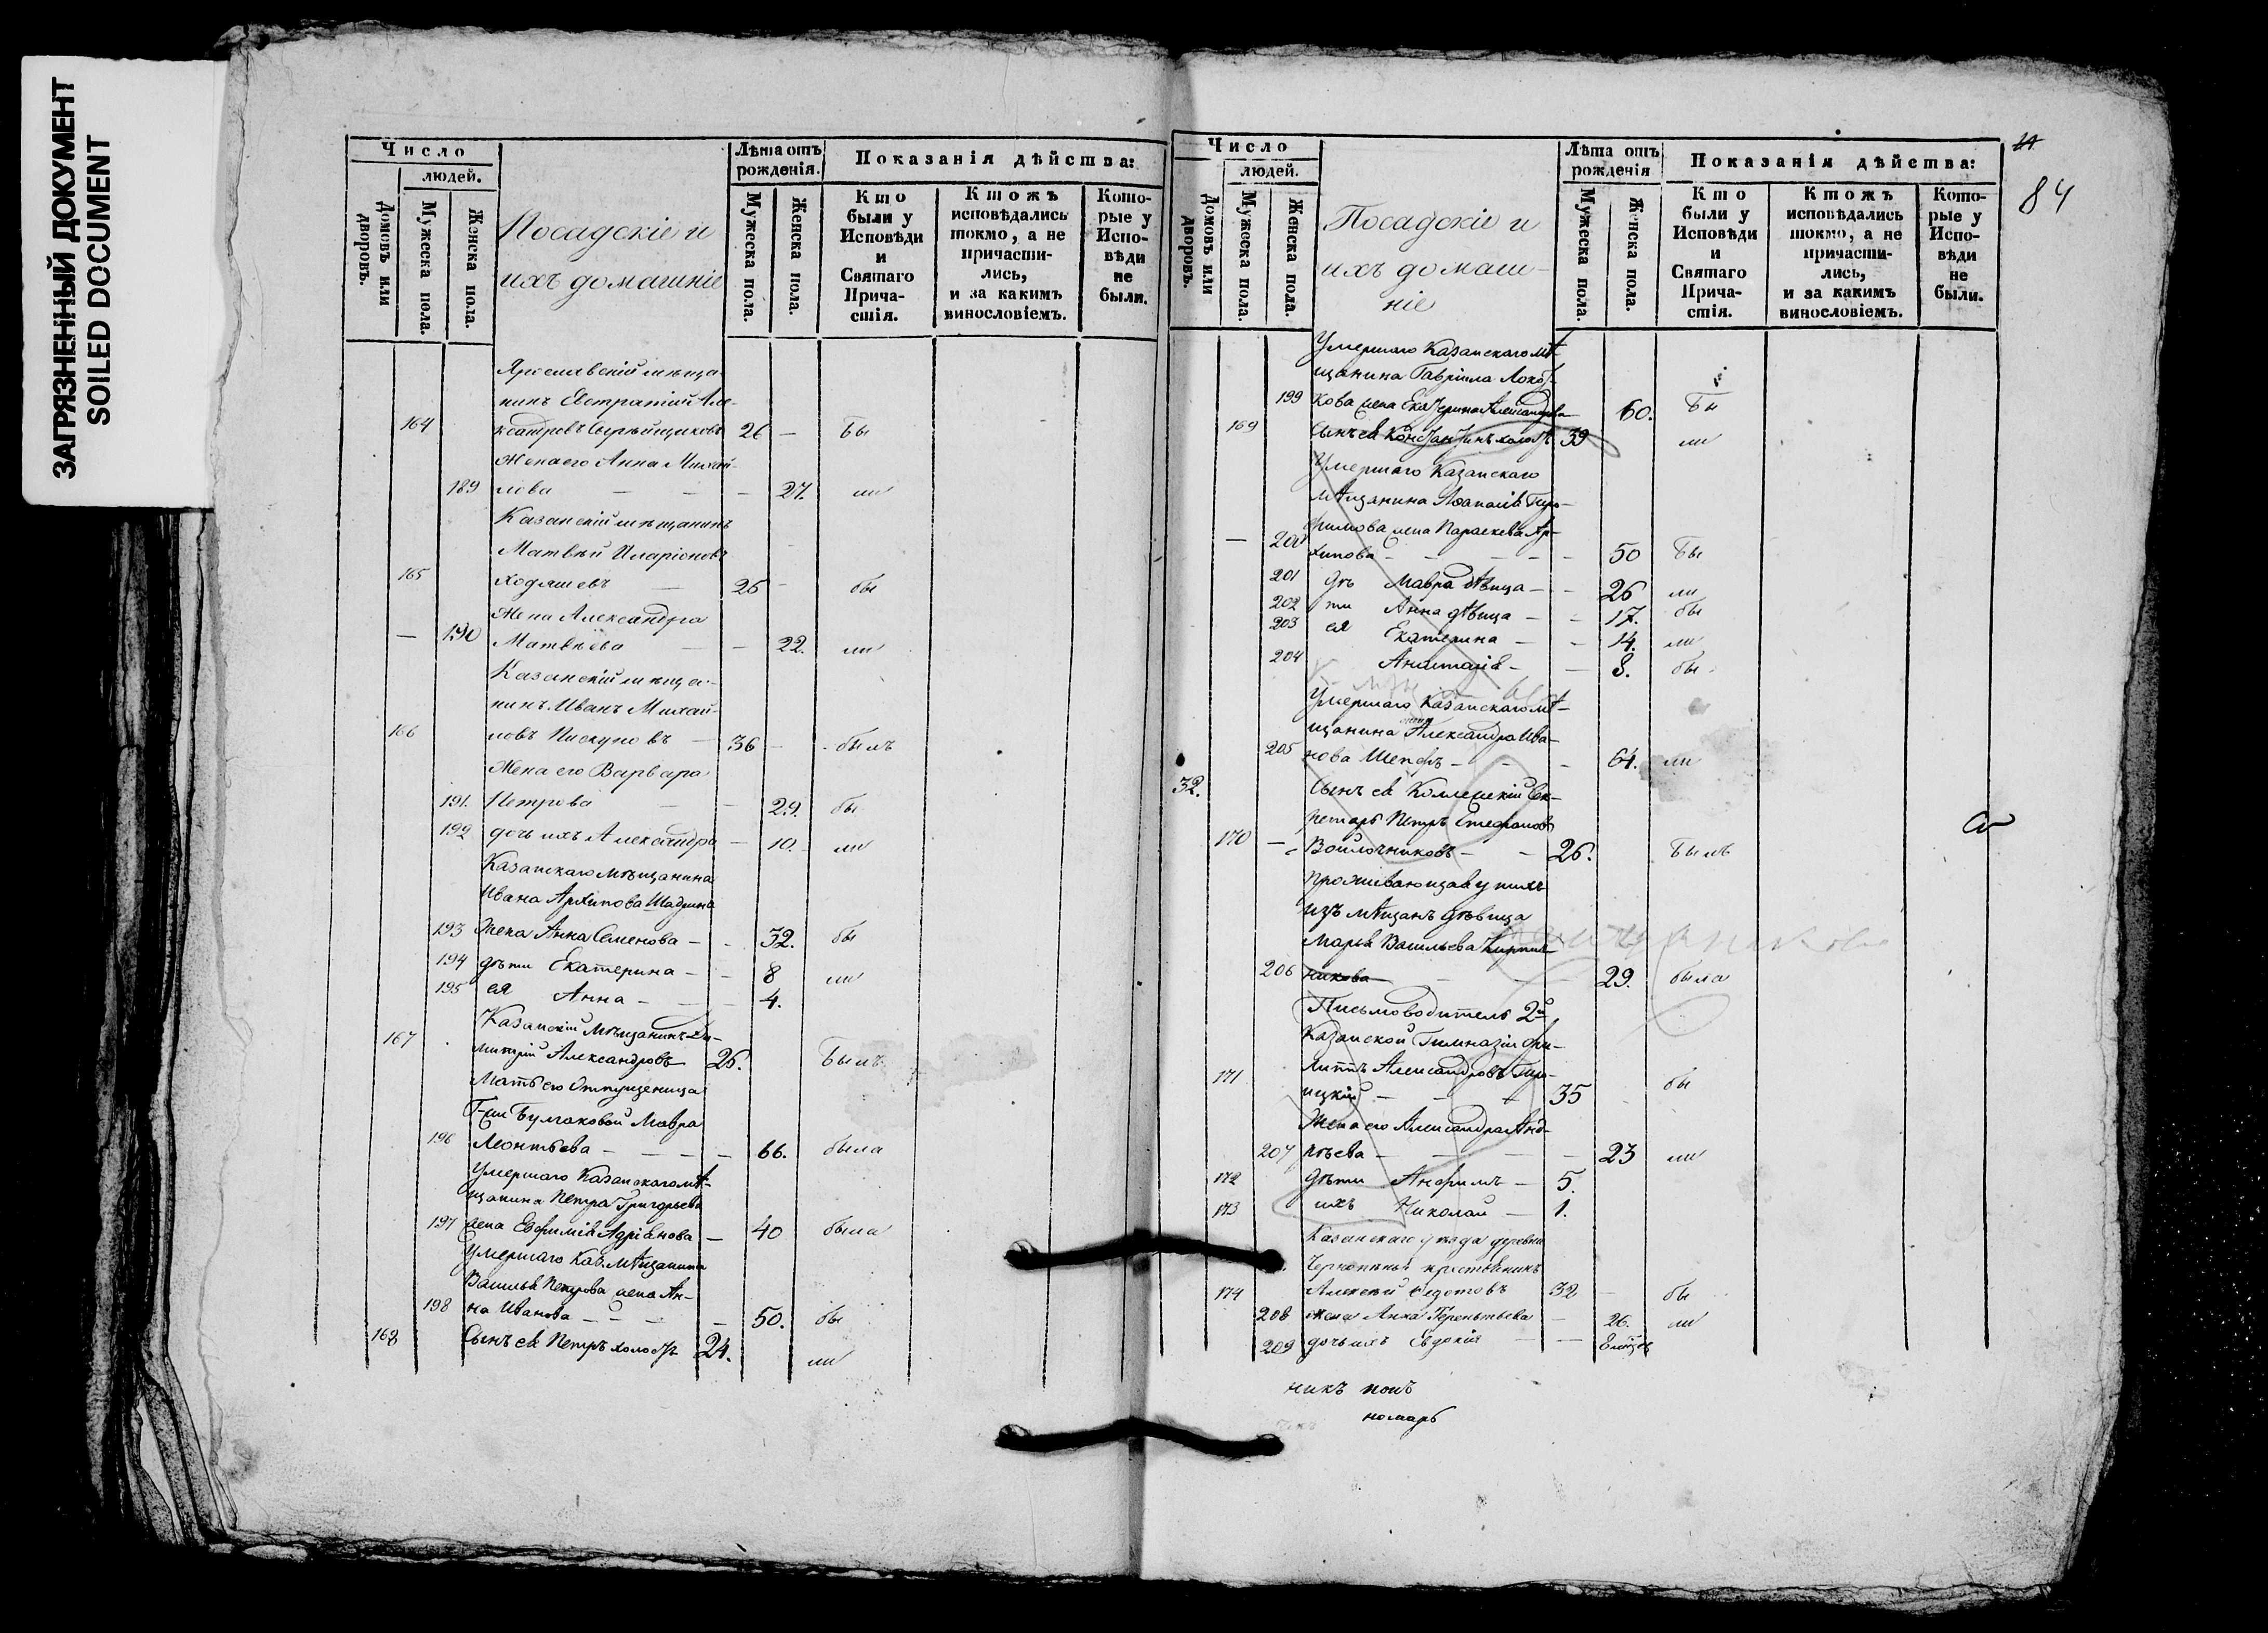 ЗАГРЯЗНЕННЫЙ ДОКУМЕНТ
SOILED DOCUMENT
Число
людей.
Домовъ или дворовъ.
Мужеска пола.
Женска пола.
Посадскіе и
ихъ домашніе
Лѣта отъ
рожденія.
Мужеска пола.
Женска пола.
Показанія дѣйства:
Кто
были у
Исповѣди
и
Святаго
Прича-
стія.
Ктожъ
исповѣдались
токмо, а не
причасти-
лись,
и за какимъ
винословіемъ.
Кото-
рые у
Испо-
вѣди
не
были.
Ярославскій мѣща-
нинъ Евстратій Але-
164 ксандровъ 26 — бы
Жена его Анна Михай-
189 лова — — — 27. ли
Казанскій мѣщанинъ
Матвѣй Иларіоновъ
165 Ходяшевъ — 25 — бы
Жена Александра
— 190 Матвѣева — — 22. ли
Казанскій мѣща-
нинъ Иванъ Михай-
166 ловъ Пискуновъ — 36 — былъ
Жена его Варвара
191. Петрова — — 29. бы
192 дочь ихъ Александра — 10. ли
Казанскаго мѣщанина
Ивана Архипова Шадрина
193 жена Анна Семенова — — 32. бы
194 дѣти Екатерина — — 8 ли
195 ея Анна — — 4.
Казанскій мѣщанинъ Ди-
167 митрій Александровъ 25. былъ
Мать его Отпущеница
Г-жи Булгаковой Мавра
196 Леонтьева — — — — 66. была
Умершаго Казанскаго мѣ-
щанина Петра Григорьева
197 жена Евфимія Адріанова — 40 была
Умершаго Каз. мѣщанина
Василья Петрова жена Ан-
198 на Иванова — — — — 50. бы
168 Сынъ ея Петръ холостъ 24. ли
Число
людей.
Домовъ или дворовъ.
Мужеска пола.
Женска пола.
Посадскіе и
ихъ домаш-
ніе
Лѣта отъ
рожденія
Мужеска пола.
Женска пола.
Показанія дѣйства:
Кто
были у
Исповѣди
и
Святаго
Прича-
стія.
Ктожъ
исповѣдались
токмо, а не
причасти-
лись,
и за какимъ
винословіемъ.
Кото-
рые у
Испо-
вѣди
не
были.
84
Умершаго Казанскаго мѣ-
щанина Гавріила
199 кова жена Екатерина Александрова 60. бы
169 Сынъ ея Константинъ холостъ 39 ли
Умершаго Казанскаго
мѣщанина Аѳанасія Тро-
фимова жена Параскева Ар-
— 200 хипова — — — — 50 бы
201 дѣ Мавра дѣвица — — 26 ли
202 ти Анна дѣвица — — 17. бы
203 ея Екатерина — — 14. ли
204 Анастасія — — 8. бы
Умершаго Казанскаго мѣ-
щанина Александра Ива-
205 нова — — — 64. ли
32. Сынъ ея Коллежскій Сек-
ретарь Петръ Стефановъ
170 — Войлочниковъ — — 26. былъ
Проживающая у нихъ
изъ мѣщанъ дѣвица
Марья Васильева Кирпич-
206 никова — — 29. была
Письмоводитель 2й
Казанской Гимназіи Фи-
липпъ Александровъ Тро-
171 ицкій — — — 35 бы
Жена его Александра Анд-
207 реева — — — — 23 ли
172 дѣти Анфимъ — 5.
173 ихъ Николай — 1.
Казанскаго уѣзда деревни
крестьянинъ
174 Алексѣй Ѳедотовъ 32 — бы
208 жена Анна Терентьева — 26. ли
209 дочь ихъ Евдокія — — 8 мѣсяц.
никъ попъ
номарь